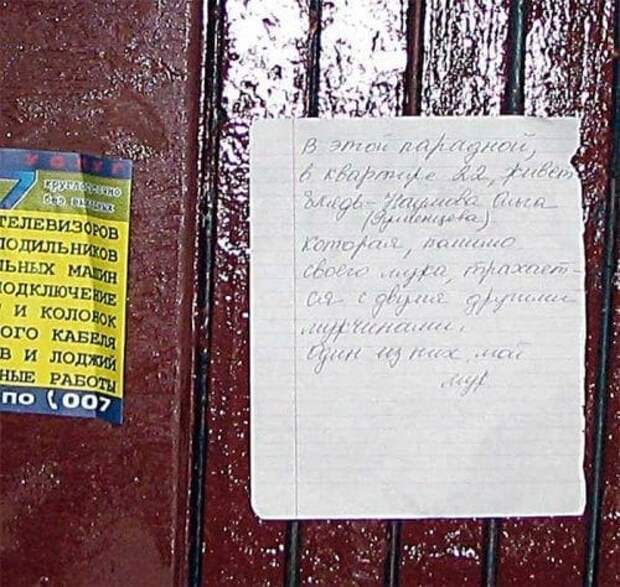 круглосуточно
без выходных
ТЕЛЕВИЗОРОВ
ЛОДИЛЬНИКОВ
ЛЬНЫХ МАШИН
ПОДКЛЮЧЕНИЕ
И КОЛОНОК
ОГО КАБЕЛЯ
В И ЛОДЖИЙ
НЫЕ РАБОТЫ
по (007
В этой парадной,
в квартире 22, живёт
блядь - Наумова Ольга
(Румянцева)
которая, помимо
своего мужа, трахает-
ся с двумя другими
мужчинами.
Один из них, мой
муж